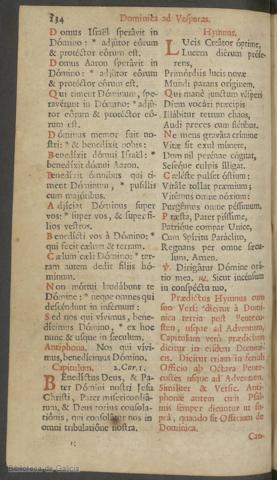 134 Dominica ad Vesperas.
Domus Israël sperávit in
Dómino: * adjútor eórum
& protéctor eórum est.
Domus Aaron sperávit in
Dómino: * adjútor eórum
& protéctor eórum est.
Qui timent Dóminum, spe-
ravérunt in Dómino: * adjú-
tor eórum & protéctor eó-
rum est.
Dóminus memor fuit no-
stri: * & benedíxit nobis:
Benedíxit dómui Israël: *
benedíxit dómui Aaron.
Benedíxit ómnibus qui ti-
ment Dóminum, * pusíllis
cum majóribus.
Adjíciat Dóminus super
vos: * super vos, & super fí-
lios vestros.
Benedícti vos à Dómino; *
qui fecit cælum & terram.
Cælum cæli Dómino: * ter-
ram autem dedit fíliis hó-
minum.
Non mórtui laudábunt te
Dómine: * neque omnes qui
descéndunt in inférnum:
Sed nos qui vívimus, bene-
dícimus Dómino, * ex hoc
nunc & usque in sæculum.
Antiphona. Nos qui vívi-
mus, benedícimus Dómino.
Capitulum. 2. Cor. 1.
Benedíctus Deus, & Pa-
ter Dómini nostri Jesu
Christi, Pater misericórdiá-
rum, & Deus totíus consola-
tiónis, qui consolátur nos in
omni tribulatióne nostra.
Hymnus.
Lucis Creátor óptime,
Lucem diérum prófe-
rens,
Primórdiis lucis novæ
Mundi parans oríginem.
Qui mane junctum vésperi
Diem vocári præcipis
Illábitur tetrum chaos,
Audi preces cum flétibus.
Ne mens graváta crímine
Vitæ sit exul múnere,
Dum nil perénne cógitat,
Seséque culpis ílligat.
Cæléste pulset óstium:
Vitále tollat præmium;
Vitémus omne nóxium:
Purgémus omne péssimum.
Præsta, Pater piíssime,
Patríque compar Unice,
Cum Spíritu Paráclito,
Regnans per omne sæcu-
lum, Amen.
℣. Dirigátur Dómine orá-
tio mea. ℟. Sicut incénsum
in conspéctu tuo.
Prædictus Hymnus cum
suo Versu dicitur à Domi-
nica tertia post Penteco-
sten, usque ad Adventum,
Capitulum verò prædictum
dicitur in eisdem Domini-
cis. Dicitur etiam in feriali
Officio ab Octava Pente-
costes usque ad Adventum.
Similiter & Versic. Anti-
phonæ autem cum Psal-
mis semper dicuntur ut su-
prà, quando sit Officium de
Dominica.
Can-
Biblioteca de Galicia